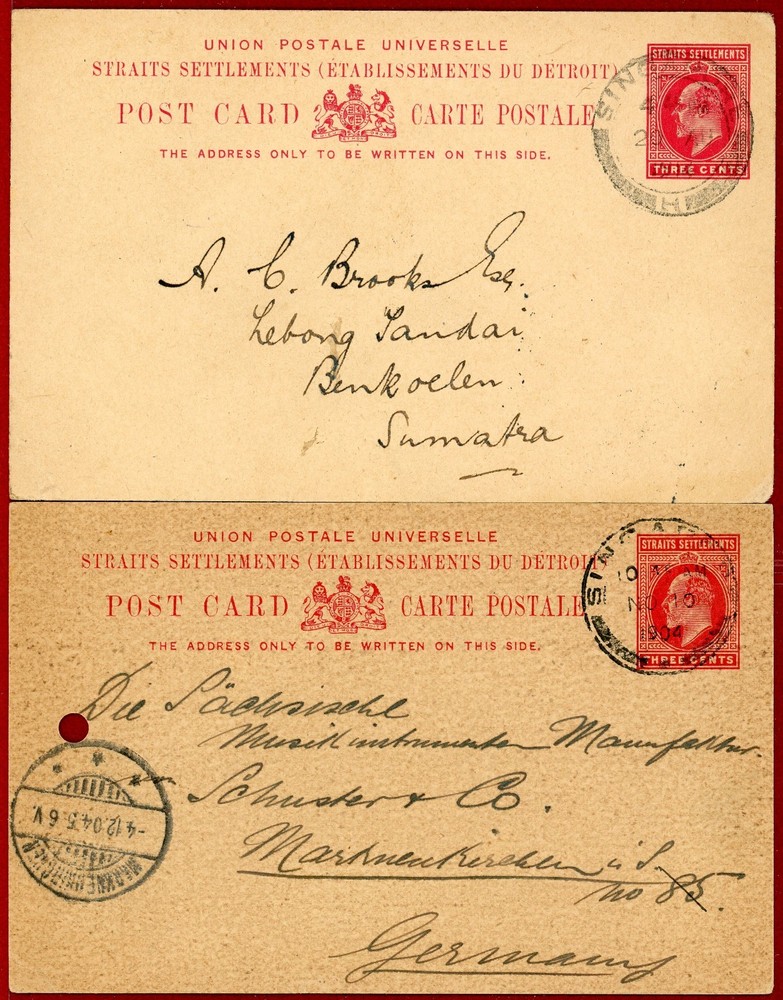 UNION POSTALE UNIVERSELLE
STRAITS SETTLEMENTS (ÉTABLISSEMENTS DU DÉTROIT)
POST CARD CARTE POSTALE
THE ADDRESS ONLY TO BE WRITTEN ON THIS SIDE.
STRAITS SETTLEMENTS
THREE CENTS
H
A. C. Brooks Esq.
Lebong Tandai
Benkoelen
Sumatra
UNION POSTALE UNIVERSELLE
STRAITS SETTLEMENTS (ÉTABLISSEMENTS DU DÉTROIT)
POST CARD CARTE POSTALE
THE ADDRESS ONLY TO BE WRITTEN ON THIS SIDE.
STRAITS SETTLEMENTS
THREE CENTS
NO 10
1904
Die Sächsische
Musikinstrumenten Manufaktur.
Schuster & Co.
Markneukirchen i. S.
No 85.
Germany
MARKNEUKIRCHEN
-4.12.04.5-6V.